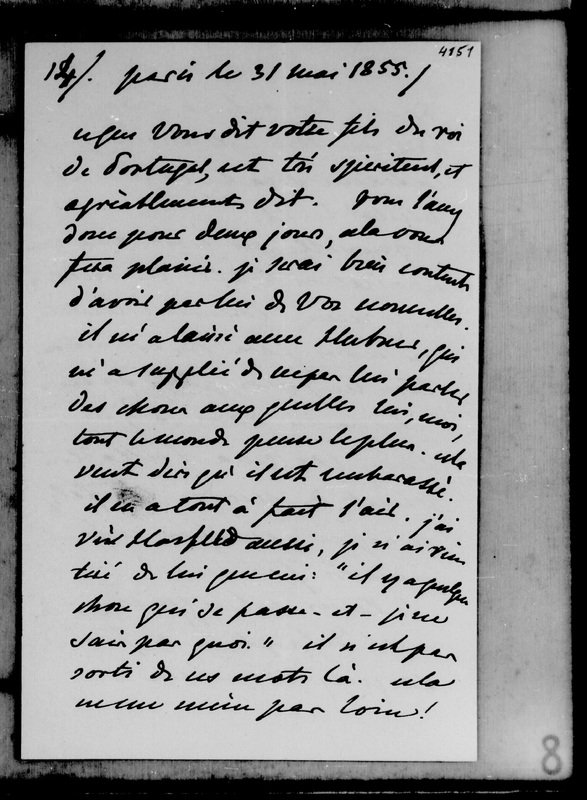 4151
124/. paris le 31 mai 1855./
ce que vous dit votre fils du roi
de Portugal, est très spirituel, et
agréablement dit. vous l'avez
donc pour deux jours, cela vous
fera plaisir. je serai bien contente
d'avoir par lui de vos nouvelles.
il m'a laissé avec Hubner, qui
m'a supplié de ne pas lui parler
des choses auxquelles lui, moi,
tout le monde pense le plus. cela
veut dire qu'il est embarassé.
il en a tout à fait l'air. j'ai
vu Hatzfeld aussi, je n'ai rien
tiré de lui que ceci: "il y a quelque
chose qui se passe - et - je ne
sais pas quoi." il n'est pas
sorti de ces mots là. cela
mène pas loin!
8